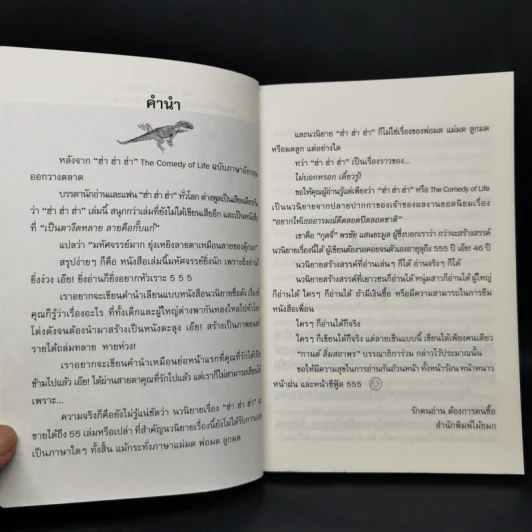 คำนำ
หลังจาก “ฮ่า ฮ่า ฮ่า” The Comedy of Life ฉบับภาษาอังกฤษ
ออกวางตลาด
บรรดานักอ่านและแฟน “ฮ่า ฮ่า ฮ่า” ทั่วโลก ต่างพูดเป็นเสียงเดียวกัน
ว่า “ฮ่า ฮ่า ฮ่า” เล่มนี้ สนุกกว่าเล่มที่ยังไม่ได้เขียนเสียอีก และเป็นหนังสือ
ที่ “เป็นตวงืดหลาย ลายคือกั๊บแก้”
แปลว่า “มหัศจรรย์มาก ยุ่งเหยิงลายตาเหมือนลายของตุ๊กแก”
สรุปง่ายๆ ก็คือ หนังสือเล่มนี้มหัศจรรย์ยิ่งนัก เพราะยิ่งอ่าน
ยิ่งง่วง เอ๊ย! ยิ่งอ่านก็ยิ่งอยากหัวเราะ 5 5 5
เราอยากจะเขียนคำนำเลียนแบบหนังสือนวนิยายชื่อดัง
คุณก็รู้ว่าเรื่องอะไร ที่ทั้งเด็กและผู้ใหญ่ต่างพากันหลงใหลไปทั่วโลก
โด่งดังจนต้องนำมาสร้างเป็นหนังตะลุง เอ๊ย! สร้างเป็นภาพยนตร์
รายได้ถล่มทลาย หายห่วง!
เราอยากจะเขียนคำนำเหมือนย่อหน้าแรกที่คุณที่รักได้
ข้ามไปแล้ว เอ๊ย! ได้ผ่านสายตาคุณที่รักไปแล้ว แต่เราก็ไม่สามารถเขียนได้
เพราะ...
ความจริงก็คือยังไม่รู้แน่ชัดว่า นวนิยายเรื่อง “ฮ่า ฮ่า ฮ่า” จะ
ขายได้ถึง 55 เล่มหรือเปล่า ที่สำคัญนวนิยายเรื่องนี้ยังไม่ได้รับการแปล
เป็นภาษาใดๆ ทั้งสิ้น แม้กระทั่งภาษาแม่มด พ่อมด ลูกมด
และนวนิยาย “ฮ่า ฮ่า ฮ่า” ก็ไม่ใช่เรื่องของพ่อมด แม่มด ลูกมด
หรือมดลูก แต่อย่างใด
ทว่า “ฮ่า ฮ่า ฮ่า” เป็นเรื่องราวของ...
ไม่บอกหรอก เดี๋ยวรู้!
ขอให้คุณผู้อ่านรู้แต่เพียงว่า “ฮ่า ฮ่า ฮ่า” หรือ The Comedy of Life
เป็นนวนิยายจากปลายปากกาของเจ้าของผลงานยอดนิยมเรื่อง
“อยากให้เธออารมณ์ดีตลอดปีตลอดชาติ”
เขาคือ “กุดจี่” พรชัย แสนยะมูล ผู้ซึ่งบอกเราว่า กว่าจะสร้างสรรค์
นวนิยายเรื่องนี้ได้ ผู้เขียนต้องรอคอยจนตัวเองอายุถึง 555 ปี เอ๊ย! 46 ปี
นวนิยายสร้างสรรค์ที่อ่านเล่นๆ ก็ได้ อ่านจริงๆ ก็ได้
นวนิยายสร้างสรรค์ที่เยาวชนก็อ่านได้ หนุ่มสาวก็อ่านได้ ผู้ใหญ่
ก็อ่านได้ ใครๆ ก็อ่านได้ ถ้ามีเงินซื้อ หรือมีความสามารถในการยืม
หนังสือเพื่อน
ใครๆ ก็อ่านได้ก็จริง
ใครๆ ก็เขียนได้ก็จริง แต่ลายเซ็นแบบนี้ เขียนได้เพียงคนเดียว
“กานต์ ลิ่มสถาพร” บรรณาธิการร่วม กล่าวไว้ประมาณนั้น
ขอให้มีความสุขในการอ่านกันถ้วนหน้า ทั้งหน้าร้อน หน้าหนาว
หน้าฝน และหน้าซีฟู้ด 555
รักคนอ่าน ต้องการคนซื้อ
สำนักพิมพ์ไม้ยมก